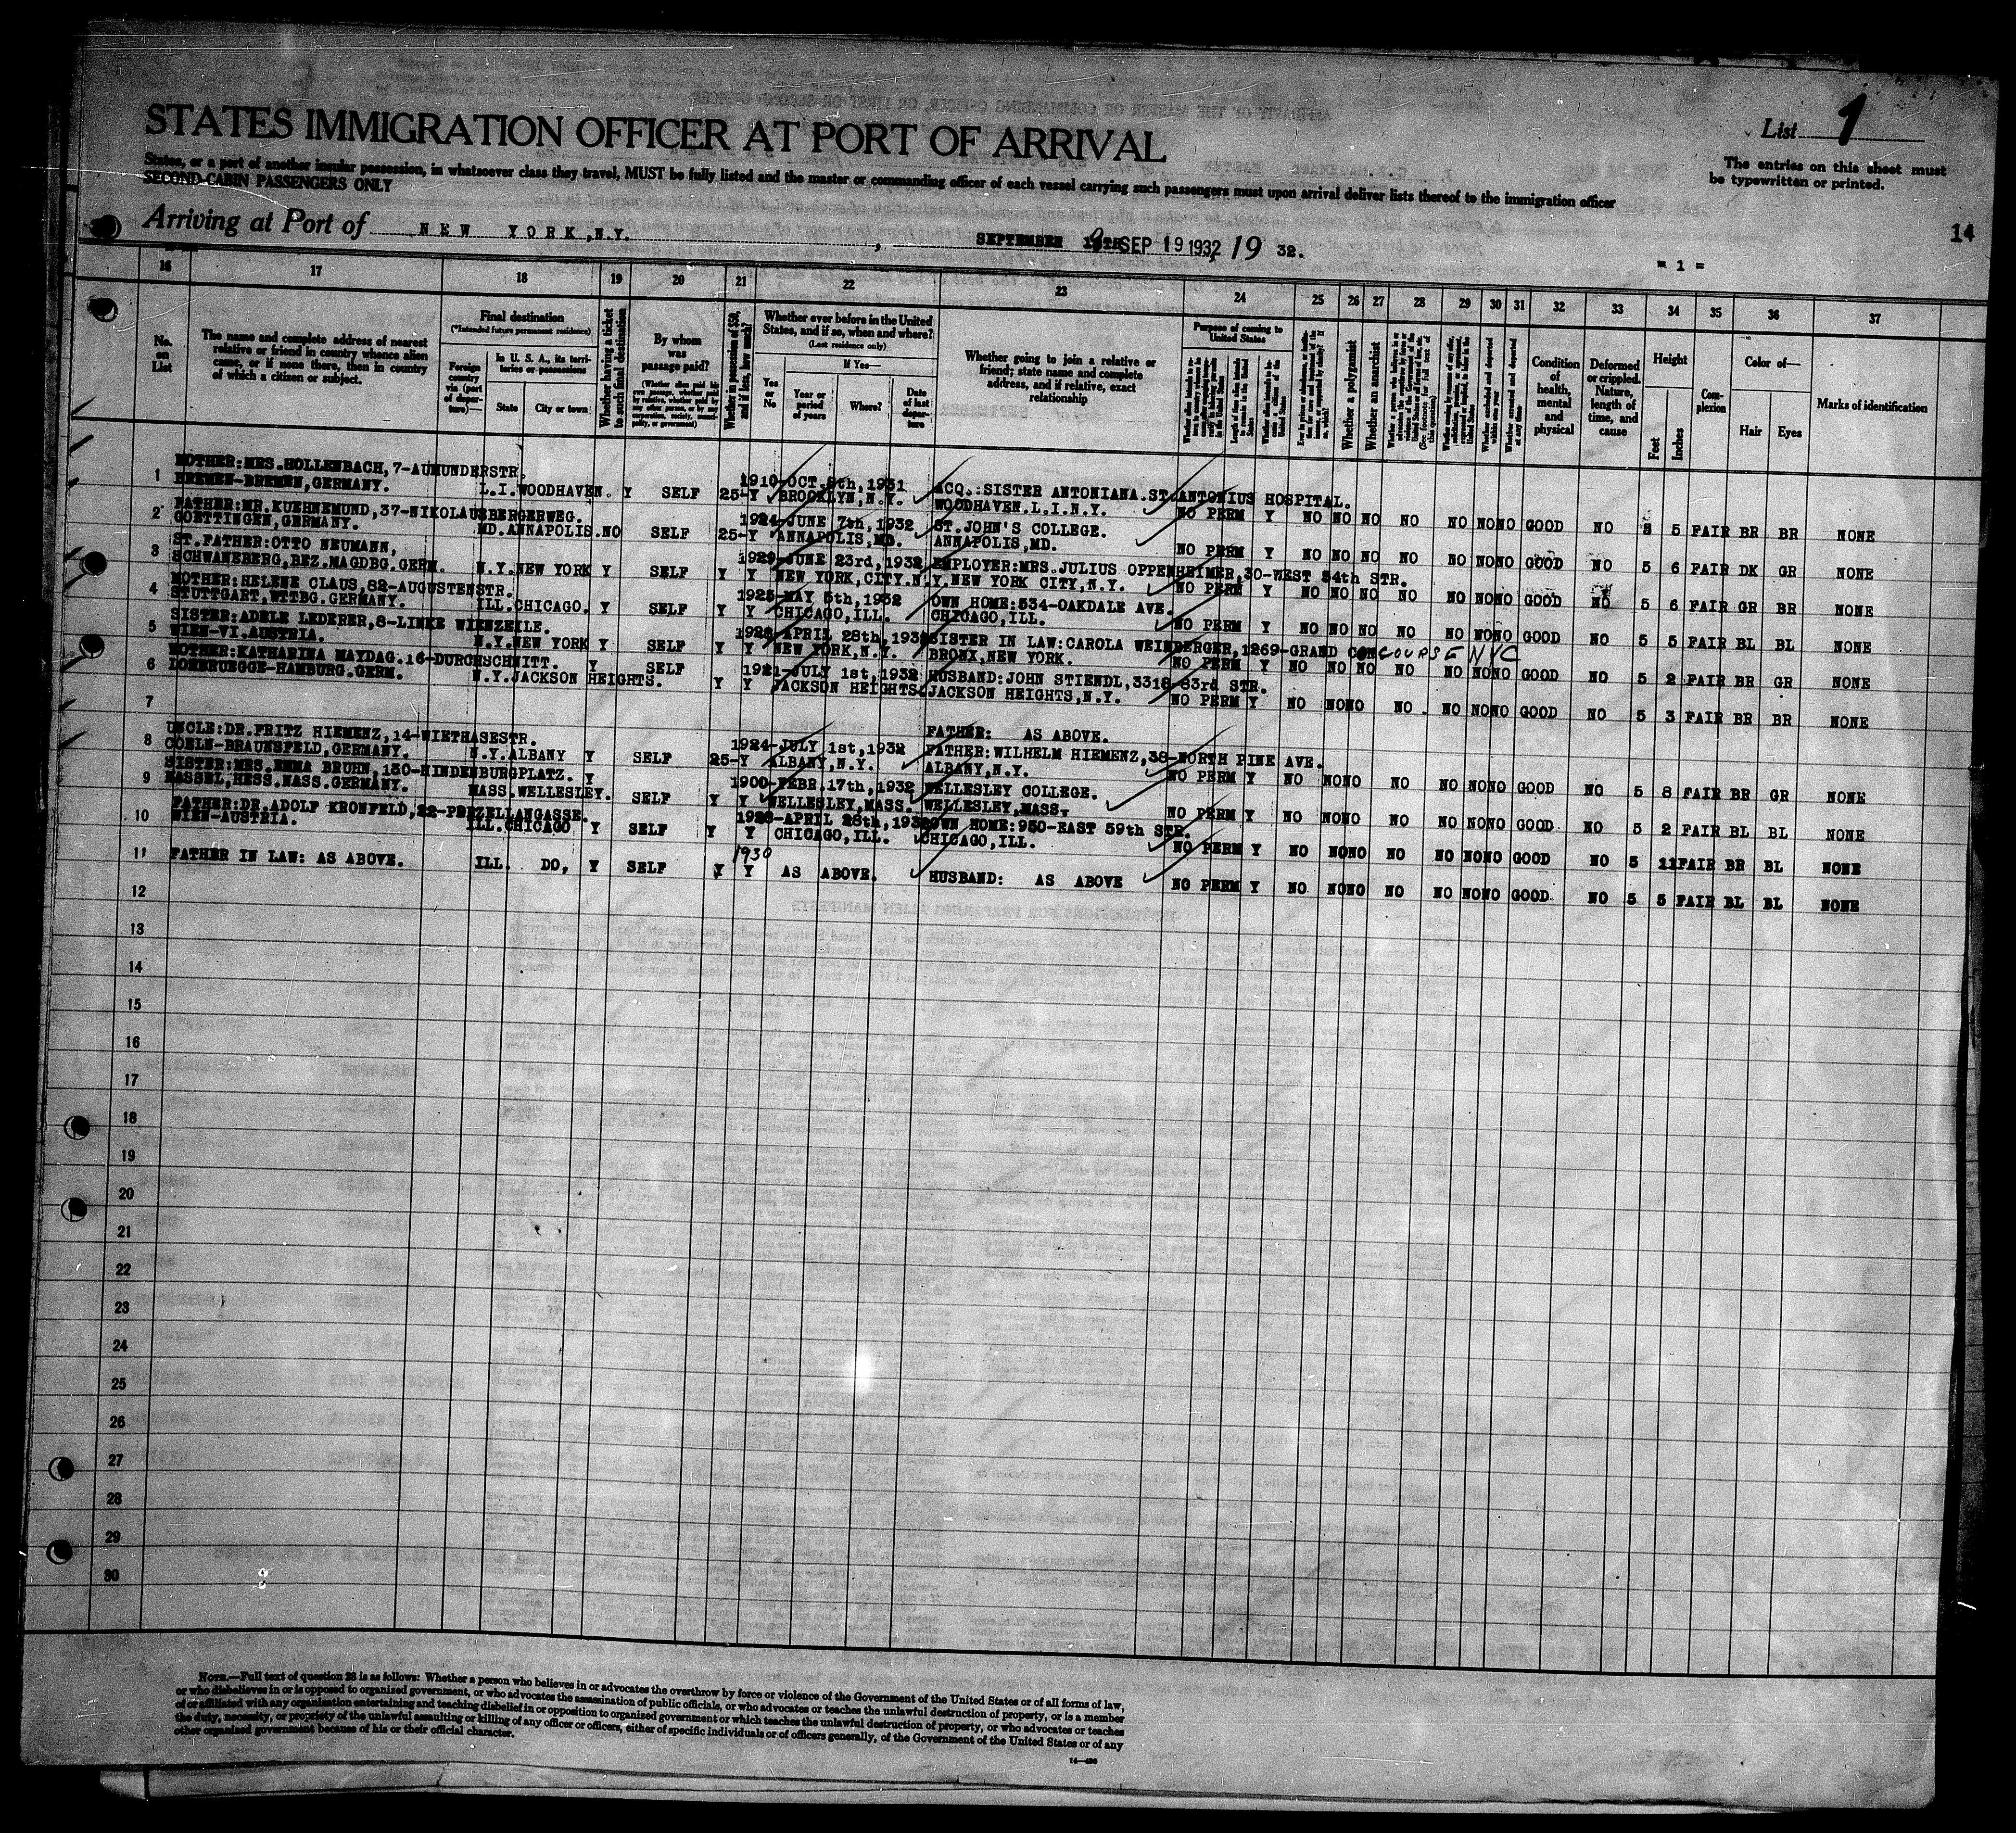 STATES IMMIGRATION OFFICER AT PORT OF ARRIVAL
List 1
States, or a port of another insular possession, in whatsoever class they travel, MUST be fully listed and the master or commanding officer of each vessel carrying such passengers must upon arrival deliver lists thereof to the immigration officer
SECOND-CABIN PASSENGERS ONLY
The entries on this sheet must
be typewritten or printed.
Arriving at Port of NEW YORK, N.Y. , SEPTEMBER SEP 19 1932, 19 32.
14
= 1 =
16 17 18 19 20 21 22 23 24 25 26 27 28 29 30 31 32 33 34 35 36 37
No. on List
The name and complete address of nearest relative or friend in country whence alien came, or if none there, then in country of which a citizen or subject.
Final destination
(*Intended future permanent residence)
Foreign country via (port of departure)—
In U. S. A., its territories or possessions
State
City or town
Whether having a ticket to such final destination
By whom was passage paid?
(Whether alien paid his own passage, whether paid by relative, whether paid by any other person, or by any corporation, society, municipality, or government)
Whether in possession of $50, and if less, how much?
Whether ever before in the United States, and if so, when and where?
(Last residence only)
Yes or No
If Yes—
Year or period of years
Where?
Date of last departure
Whether going to join a relative or friend; state name and complete address, and if relative, exact relationship
Purpose of coming to United States
Whether a polygamist
Whether an anarchist
(See footnote for full text of this question)
Whether arrested and deported at any time
Condition of health, mental and physical
Deformed or crippled. Nature, length of time, and cause
Height
Feet
Inches
Complexion
Color of—
Hair
Eyes
Marks of identification
1 MOTHER:MRS.HOLLENBACH,7-AUMUNDERSTR.
BREMEN-BREMEN,GERMANY. L.I.WOODHAVEN. Y SELF 25-Y 1910-OCT.8th,1931 BROOKLYN,N.Y. ACQ.:SISTER ANTONIANA.ST.ANTONIUS HOSPITAL. WOODHAVEN.L.I.N.Y. NO PERM Y NO NO NO NO NO NO NO GOOD NO 5 5 FAIR BR BR NONE
2 FATHER:MR.KUEHNEMUND,37-NIKOLAUSBERGERWEG.
GOETTINGEN,GERMANY. MD.ANNAPOLIS.NO SELF 25-Y 1924-JUNE 7th,1932 ANNAPOLIS,MD. ST.JOHN'S COLLEGE. ANNAPOLIS,MD. NO PERM Y NO NO NO NO NO NO NO GOOD NO 5 6 FAIR DK GR NONE
3 ST.FATHER:OTTO NEUMANN,
SCHWANEBERG,BEZ.MAGDBG.GERM. N.Y.NEW YORK Y SELF Y Y 1929-JUNE 23rd,1932 NEW YORK,CITY.N.Y. EMPLOYER:MRS.JULIUS OPPENHEIMER,30-WEST 54th STR. NEW YORK CITY,N.Y. NO PERM Y NO NO NO NO NO NO NO GOOD NO 5 6 FAIR GR BR NONE
4 MOTHER:HELENE CLAUS,82-AUGUSTENSTR.
STUTTGART,WTTBG.GERMANY. ILL.CHICAGO. Y SELF Y Y 1925-MAY 5th,1932 CHICAGO,ILL. OWN HOME:534-OAKDALE AVE. CHICAGO,ILL. NO PERM Y NO NO NO NO NO NO NO GOOD NO 5 5 FAIR BL BL NONE
5 SISTER:ADELE LEDERER,8-LINKE WIENZEILE.
WIEN-VI.AUSTRIA. N.Y.NEW YORK Y SELF Y Y APRIL 28th,1932 NEW YORK,N.Y. SISTER IN LAW:CAROLA WEINBERGER,1269-GRAND CONCOURSE NYC BRONX,NEW YORK. NO PERM Y NO NO NO NO NO NO NO GOOD NO 5 2 FAIR BR GR NONE
6 MOTHER:KATHARINA MAYDAG.16-DURCHSCHNITT.
LOHBRUEGGE-HAMBURG.GERM. N.Y.JACKSON HEIGHTS. Y SELF Y Y 1921-JULY 1st,1932 JACKSON HEIGHTS. HUSBAND:JOHN STIENDL,3318-83rd STR. JACKSON HEIGHTS,N.Y. NO PERM Y NO NO NO NO NO NO NO GOOD NO 5 3 FAIR BR BR NONE
7 FATHER: AS ABOVE.
8 UNCLE:DR.FRITZ HIEMENZ,14-WIETHASESTR.
COELN-BRAUNSFELD,GERMANY. N.Y.ALBANY Y SELF 25-Y 1924-JULY 1st,1932 ALBANY,N.Y. FATHER:WILHELM HIEMENZ,38-NORTH PINE AVE. ALBANY,N.Y. NO PERM Y NO NO NO NO NO NO NO GOOD NO 5 8 FAIR BR GR NONE
9 SISTER:MRS.EMMA BRUHN,130-HINDENBURGPLATZ.
KASSEL,HESS.NASS.GERMANY. MASS.WELLESLEY. Y SELF Y Y 1900-FEBR.17th,1932 WELLESLEY,MASS. WELLESLEY COLLEGE. WELLESLEY,MASS. NO PERM Y NO NO NO NO NO NO NO GOOD NO 5 2 FAIR BL BL NONE
10 FATHER:DR.ADOLF KRONFELD,22-PORZELLANGASSE.
WIEN-AUSTRIA. ILL.CHICAGO Y SELF Y Y APRIL 28th,1932 CHICAGO,ILL. OWN HOME:950-EAST 59th STR. CHICAGO,ILL. NO PERM Y NO NO NO NO NO NO NO GOOD NO 5 11 FAIR BR BL NONE
11 FATHER IN LAW: AS ABOVE. ILL. DO, Y SELF Y Y 1930 AS ABOVE. HUSBAND: AS ABOVE NO PERM Y NO NO NO NO NO NO NO GOOD NO 5 5 FAIR BL BL NONE
12
13
14
15
16
17
18
19
20
21
22
23
24
25
26
27
28
29
30
NOTE.—Full text of question 28 is as follows: Whether a person who believes in or advocates the overthrow by force or violence of the Government of the United States or of all forms of law,
or who disbelieves in or is opposed to organized government, or who advocates the assassination of public officials, or who advocates or teaches the unlawful destruction of property, or is a member
of or affiliated with any organization entertaining and teaching disbelief in or opposition to organized government or which teaches the unlawful destruction of property, or who advocates or teaches
the duty, necessity, or propriety of the unlawful assaulting or killing of any officer or officers, either of specific individuals or of officers generally, of the Government of the United States or of any
other organized government because of his or their official character.
14—430